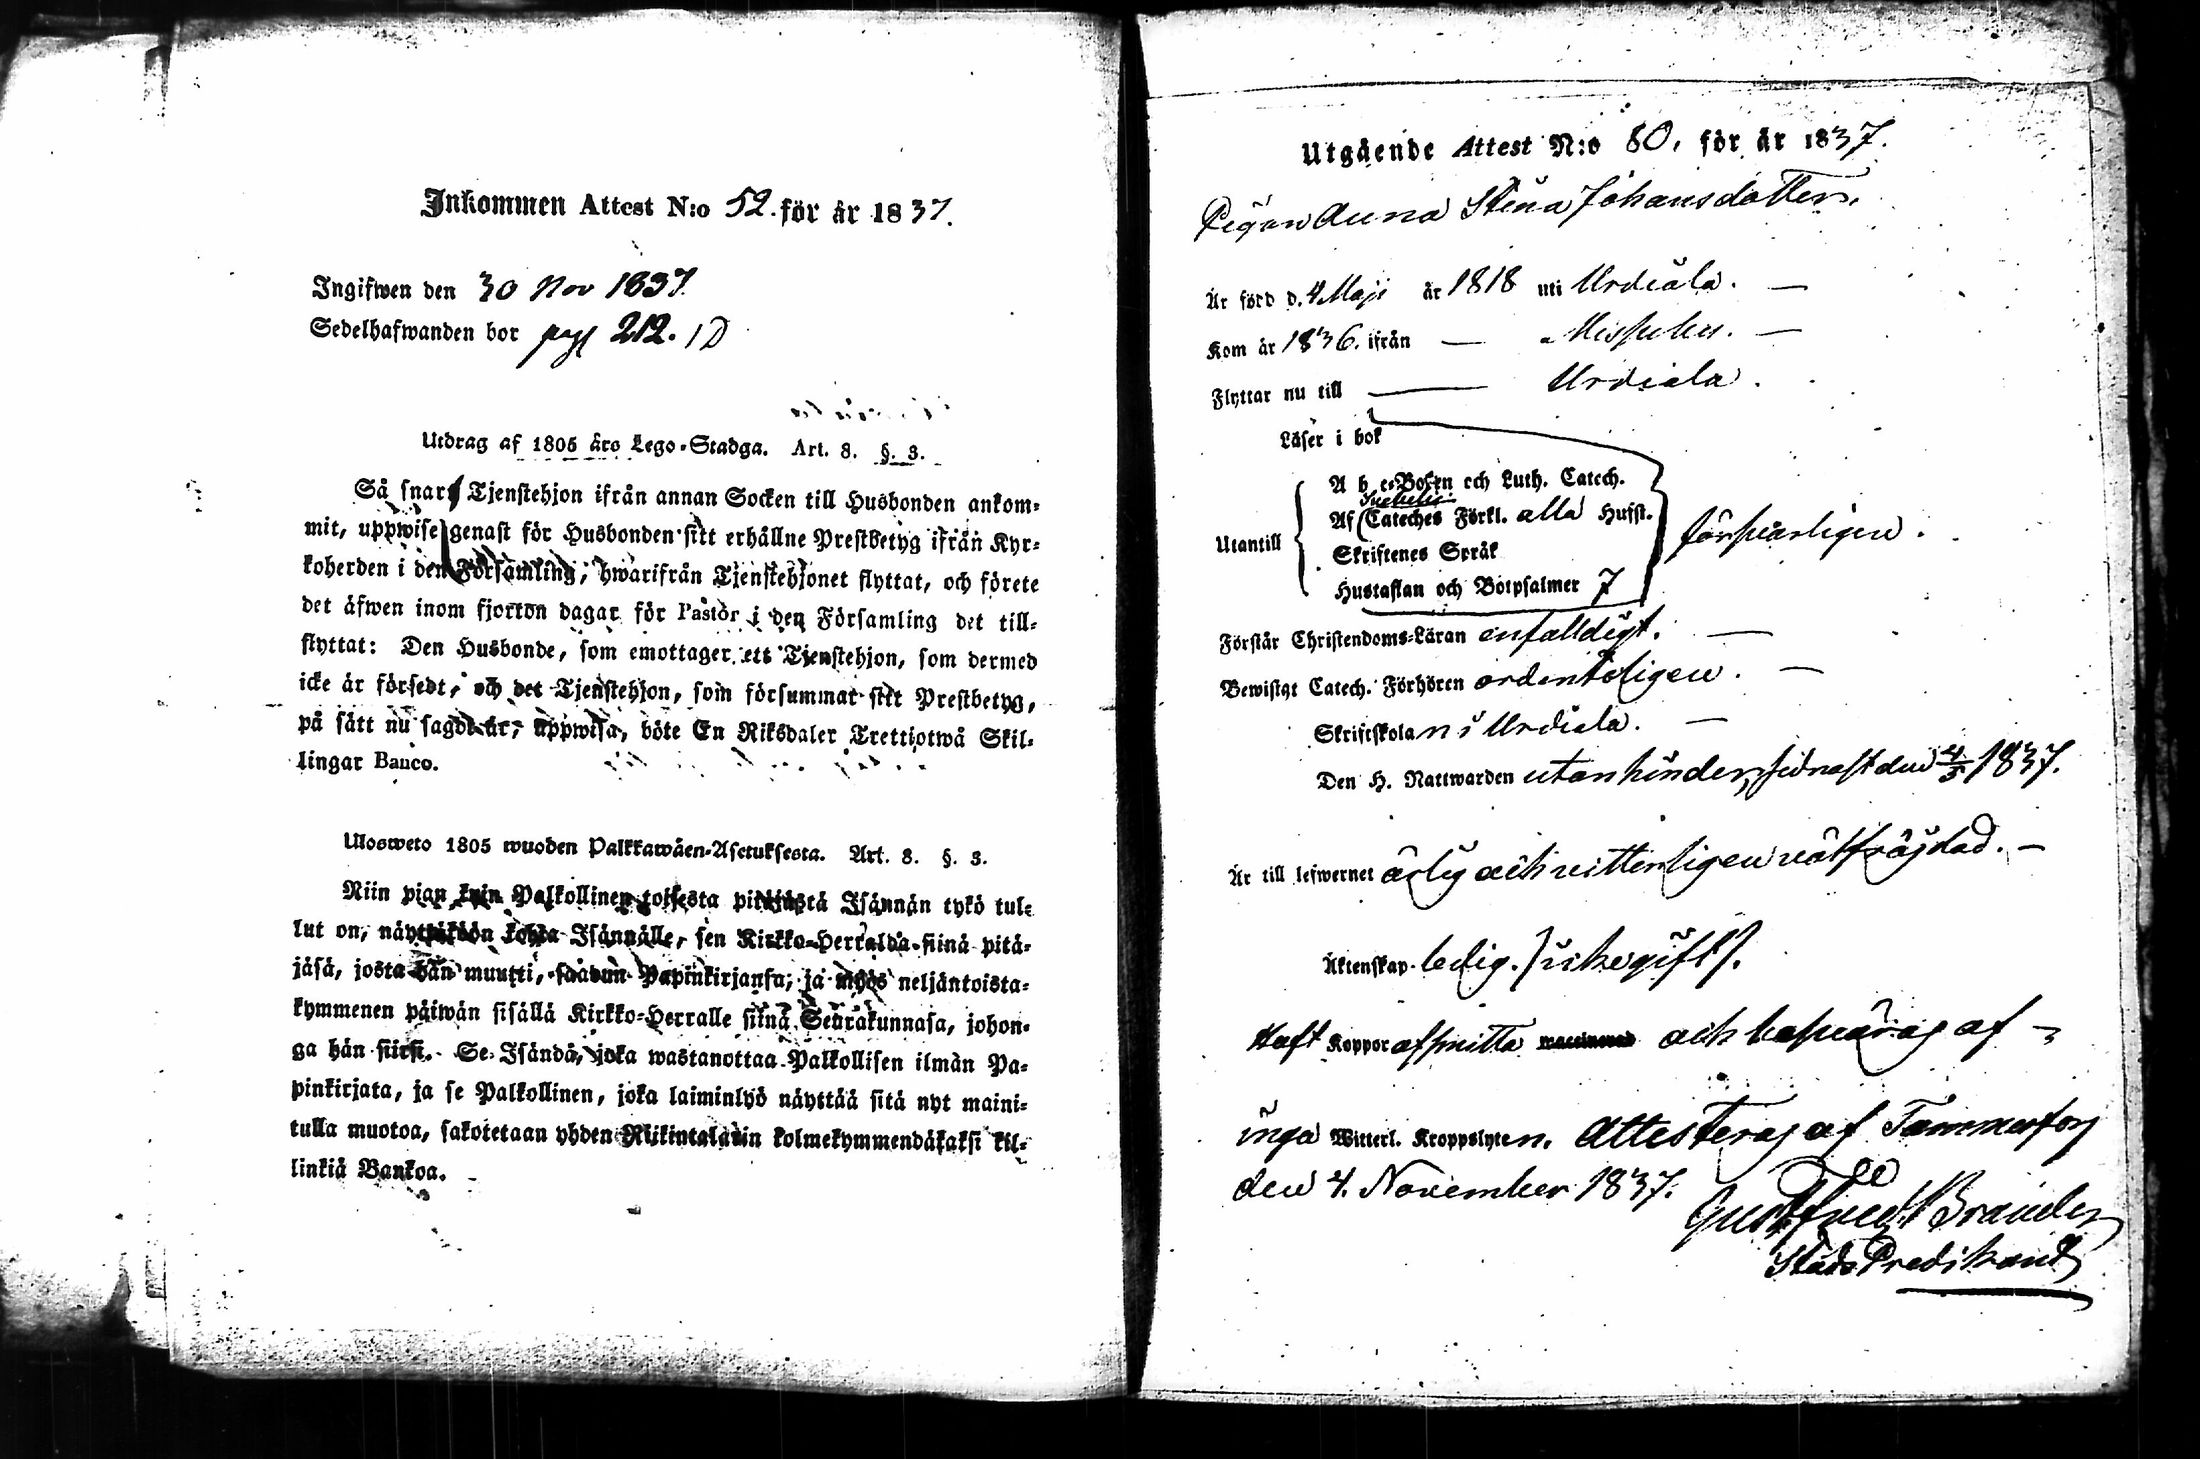 Inkommen Attest N:o 52. för år 1837.
Ingifwen den 30 Nov 1837.
Sedelhafwanden bor pag 212. 1D
Utdrag af 1805 års Lego-Stadga. Art. 8. §. 3.
Så snart Tjenstehjon ifrån annan Socken till Husbonden ankom-
mit, uppwise genast för Husbonden sitt erhållne Prestbetyg ifrån Kyr-
koherden i den Församling, hwarifrån Tjenstehjonet flyttat, och förete
det äfwen inom fjorton dagar för Pastor i den Församling det till-
flyttat: Den Husbonde, som emottager ett Tjenstehjon, som dermed
icke är försedt, och det Tjenstehjon, som försummar sitt Prestbetyg,
på sätt nu sagdt är, uppwisa, böte En Riksdaler Trettiotwå Skil-
lingar Banco.
Ulosweto 1805 wuoden Palkkawäen-Asetuksesta. Art. 8. §. 3.
Niin pian kuin Palkollinen toisesta pitäjästä Isännän tykö tul-
lut on, näyttäköön kohta Isännälle, sen Kirkko-Herralda siinä pitä-
jäsä, josta hän muutti, saadun Papinkirjansa, ja myös neljäntoista-
kymmenen päiwän sisällä Kirkko-Herralle siinä Seurakunnasa, johon-
ga hän siirsi. Se Isändä, joka wastanottaa Palkollisen ilmän Pa-
pinkirjata, ja se Palkollinen, joka laiminlyö näyttää sitä nyt maini-
tulla muotoa, sakotetaan yhden Riikintalarin kolmekymmendäkaksi kil-
linkiä Bankoa.
Utgående Attest N:o 80. för år 1837.
Pigan Anna Stina Johansdotter.
Är född d. 4 Maji år 1818 uti Urdiala. —
Kom år 1836. ifrån — Messuby. —
Flyttar nu till — Urdiala.
Läser i bok
A b c-Boken och Luth. Catech.
Svebelii
Utantill Af Cateches Förkl. alla Hufst. försvarligen.
Skriftenes Språk
Hustaflan och Botpsalmer 7
Förstår Christendoms-Läran enfalldigt. —
Bewistat Catech. Förhören ordenteligen. —
Skriftskolan i Urdiala. —
Den H. Nattwarden utan hinder, sidnast den 4/5 1837.
Är till lefwernet ärlig och vitterligen välfräjdad. —
Äktenskap ledig. / icke gift /.
Haft Koppor af smitta och besväras af
inga Witterl. Kroppslyten. Attesteras af Tammerfors
den 4. November 1837.
Gust Fredr Brander
Stads Predikant